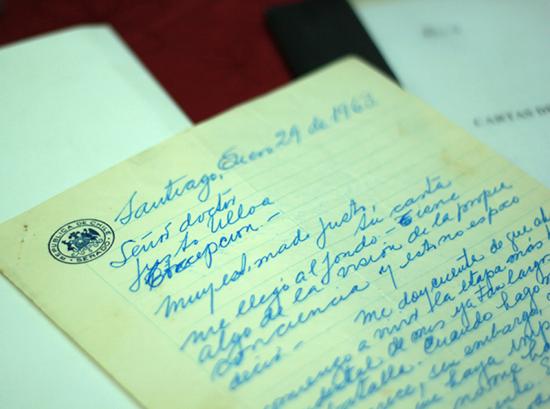 CARTAS DE
REPUBLICA DE CHILE
SENADO
Santiago, Enero 29 de 1963
Señor doctor
Justo Ulloa
Concepcion.-
Muy estimado Justo,
Su carta
me llegó al fondo - Tiene
algo de la visión de la propia
conciencia y esto no es poco
decir.- Me doy cuenta de que
comienzo a vivir la etapa más
de mis ya largos
batalla. Cuando hago
sin embargo,
haya
no me